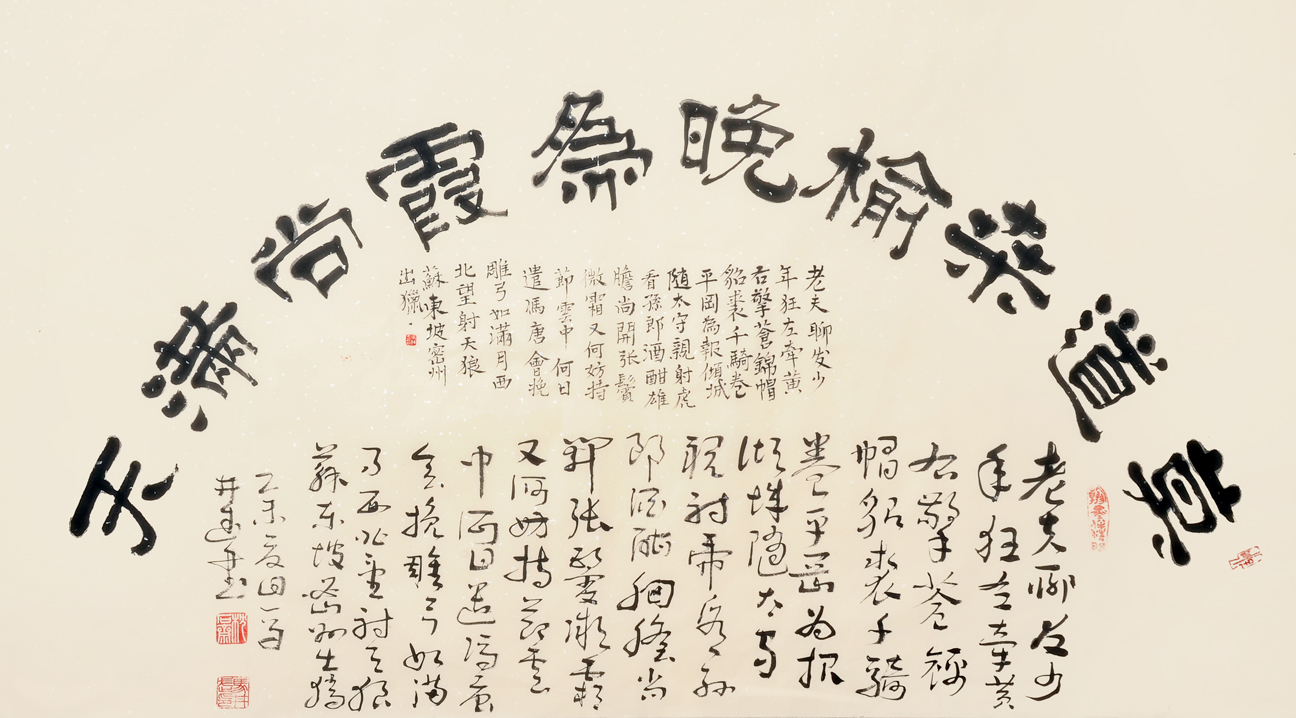 莫道桑榆晚為霞尚滿天
老夫聊发少
年狂左牽黄
右擎蒼錦帽
貂裘千騎卷
平岡為報傾城
随太守親射虎
看孫郎酒酣雄
膽尚開张鬢
微霜又何妨持
節雲中何日
遣馮唐會挽
雕弓如滿月西
北望射天狼
蘇東坡密州
出獵
老夫聊发少
年狂左牵黄
右擎苍锦
帽貂裘千骑
卷平岡为报
倾城随太守
親射虎看孙
郎酒酣胸膽尚
开张鬓微霜
又何妨持节云
中何日遣冯唐
会挽雕弓如满
月西北望射天狼
苏东坡密州出猎
乙未夏日